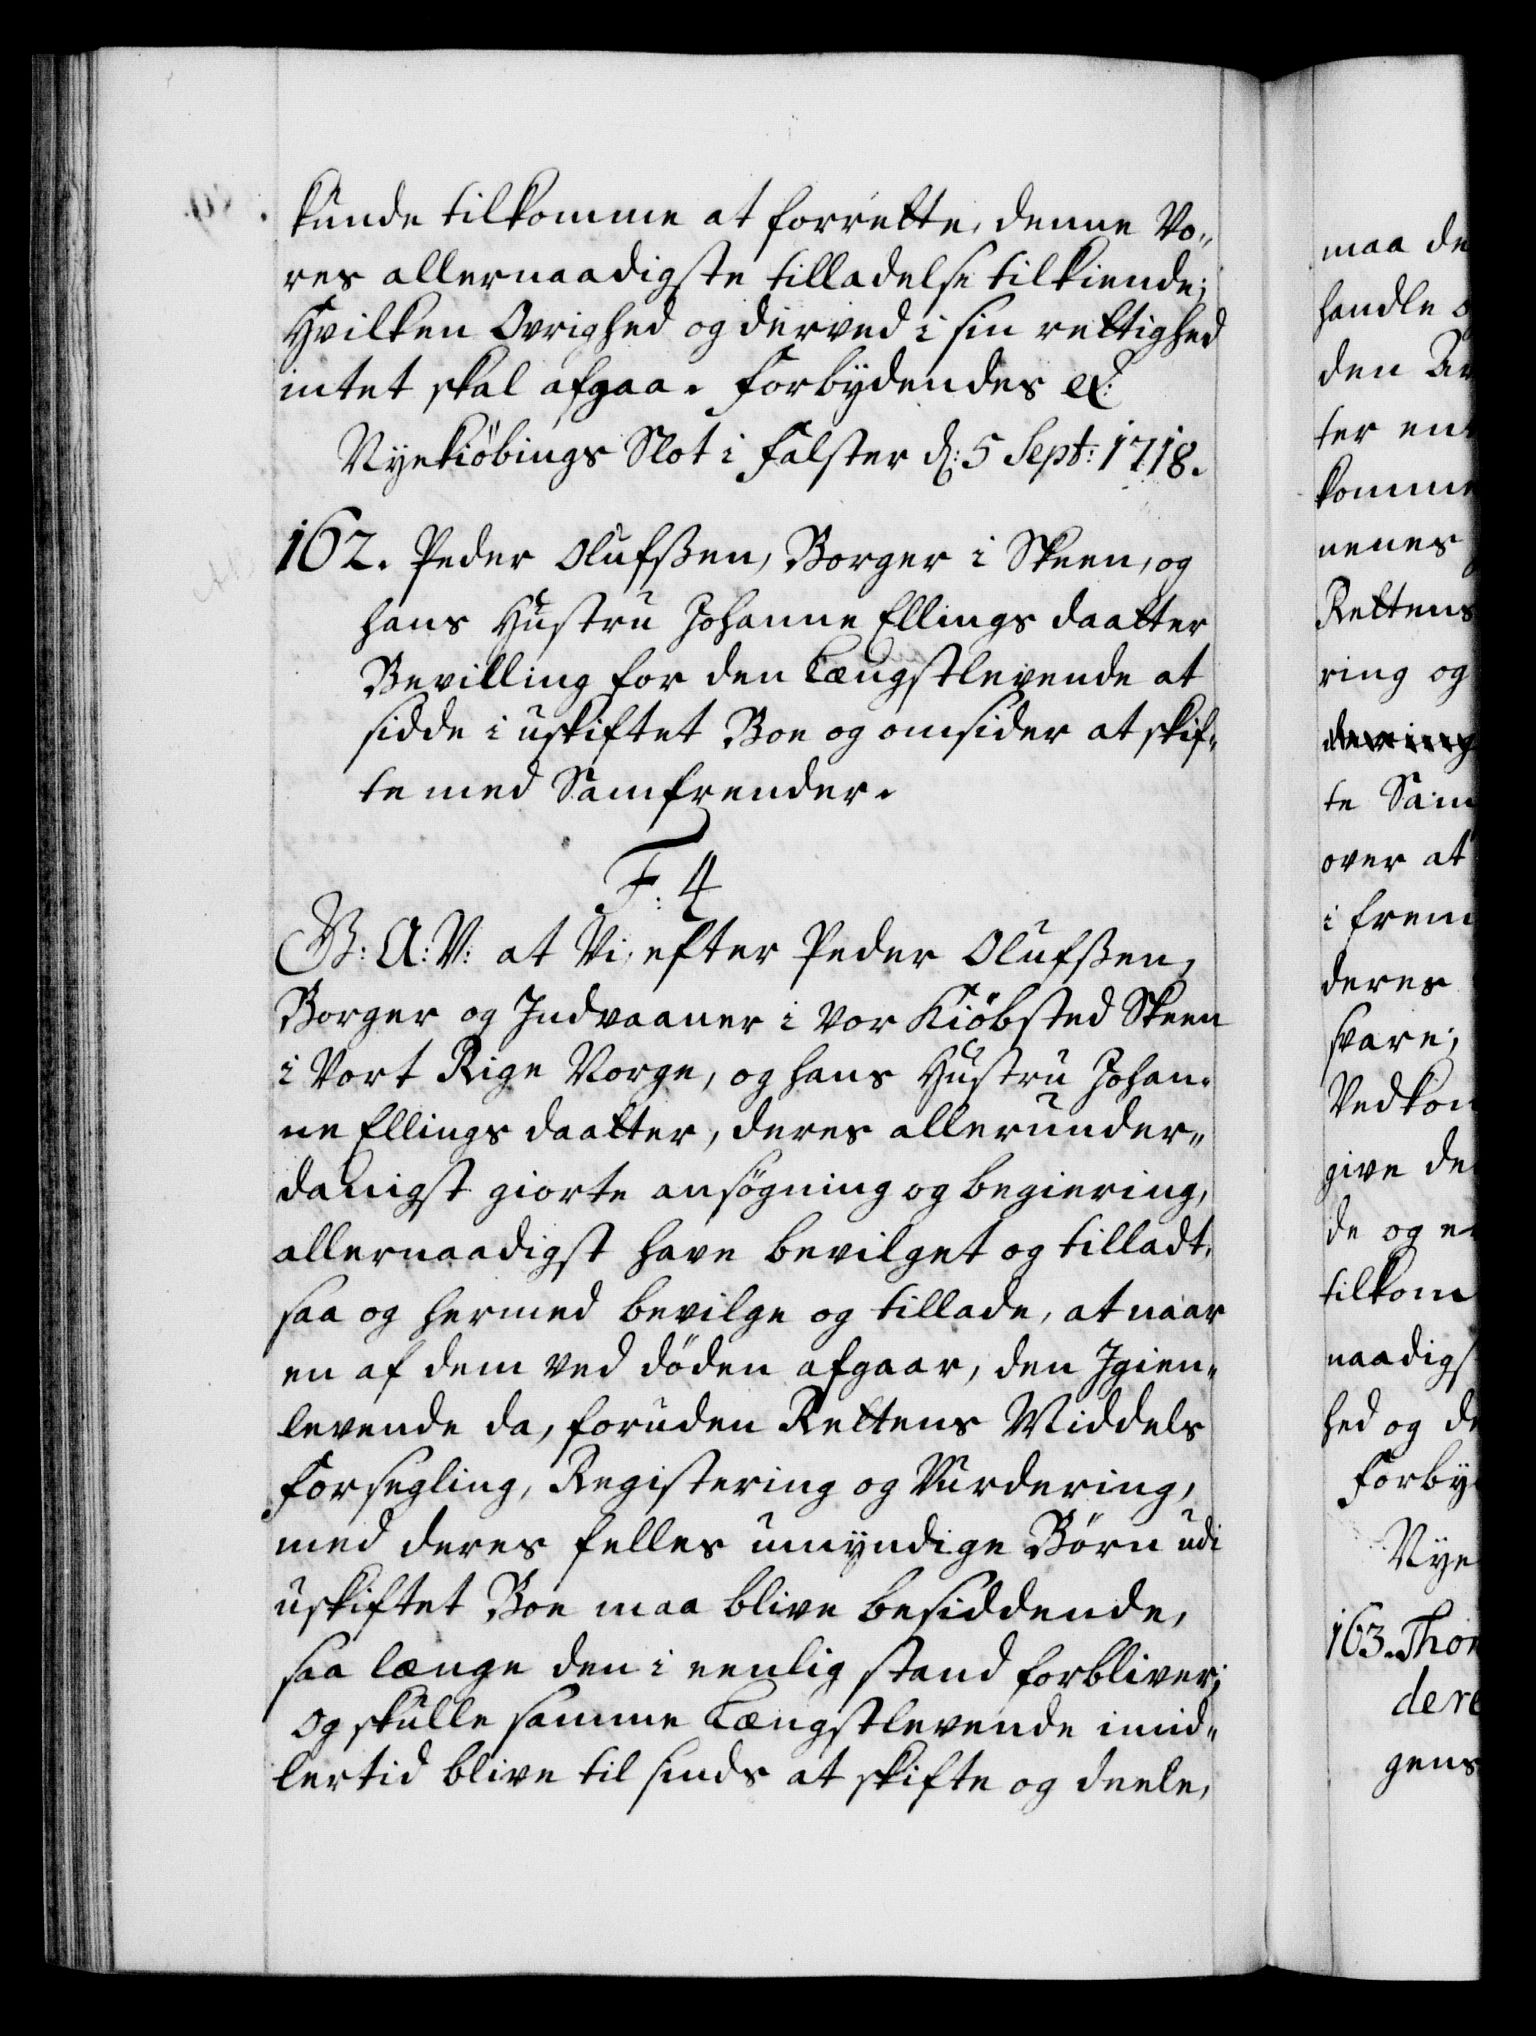 kunde tilkomme at forrette, denne Vo„
res allernaadigste tilladelse tilkiende;
Hvilken Øvrighed og derved i sin rettighed
intet skal afgaa. Forbydendes etc:
Nyekiöbings Slot i Falster d: 5 Sept: 1718.
162. Peder Olufßen, Borger i Skeen, og
hans Hustru Johanne Ellings daatter
Bevilling for den Længstlevende at
sidde i uskiftet Boe og omsider at skif„
te med Samfrender.
F: 4
G: A: V: at Vi, efter Peder Olufßen,
Borger og Indvaaner i vor Kiöbsted Skeen
i Vort Rige Norge, og hans Hustru Johan„
ne Ellings daatter, deres allerunder„
danigst giorte ansögning og begiering,
allernaadigst have bevilget og tilladt,
saa og hermed bevilge og tillade, at naar
en af dem ved döden afgaar, den Igien„
levende da, foruden Rettens Middels
Forsegling, Registering og Vurdering,
med deres felles umyndige Börn udi
uskiftet Boe maa blive besiddende,
saa længe den i eenlig stand forbliver;
og skulle samme Længstlevende imid„
lertid blive til sinds at skifte og deele,
maa de
handle
den
ter
komme
nenes
Rettens
ring og
te Sam
over at
i frem
deres
svare;
Vedkom
give de
de og
tilkom
naadigs
hed og
Forby
Nye
163. Thom
dere
gens